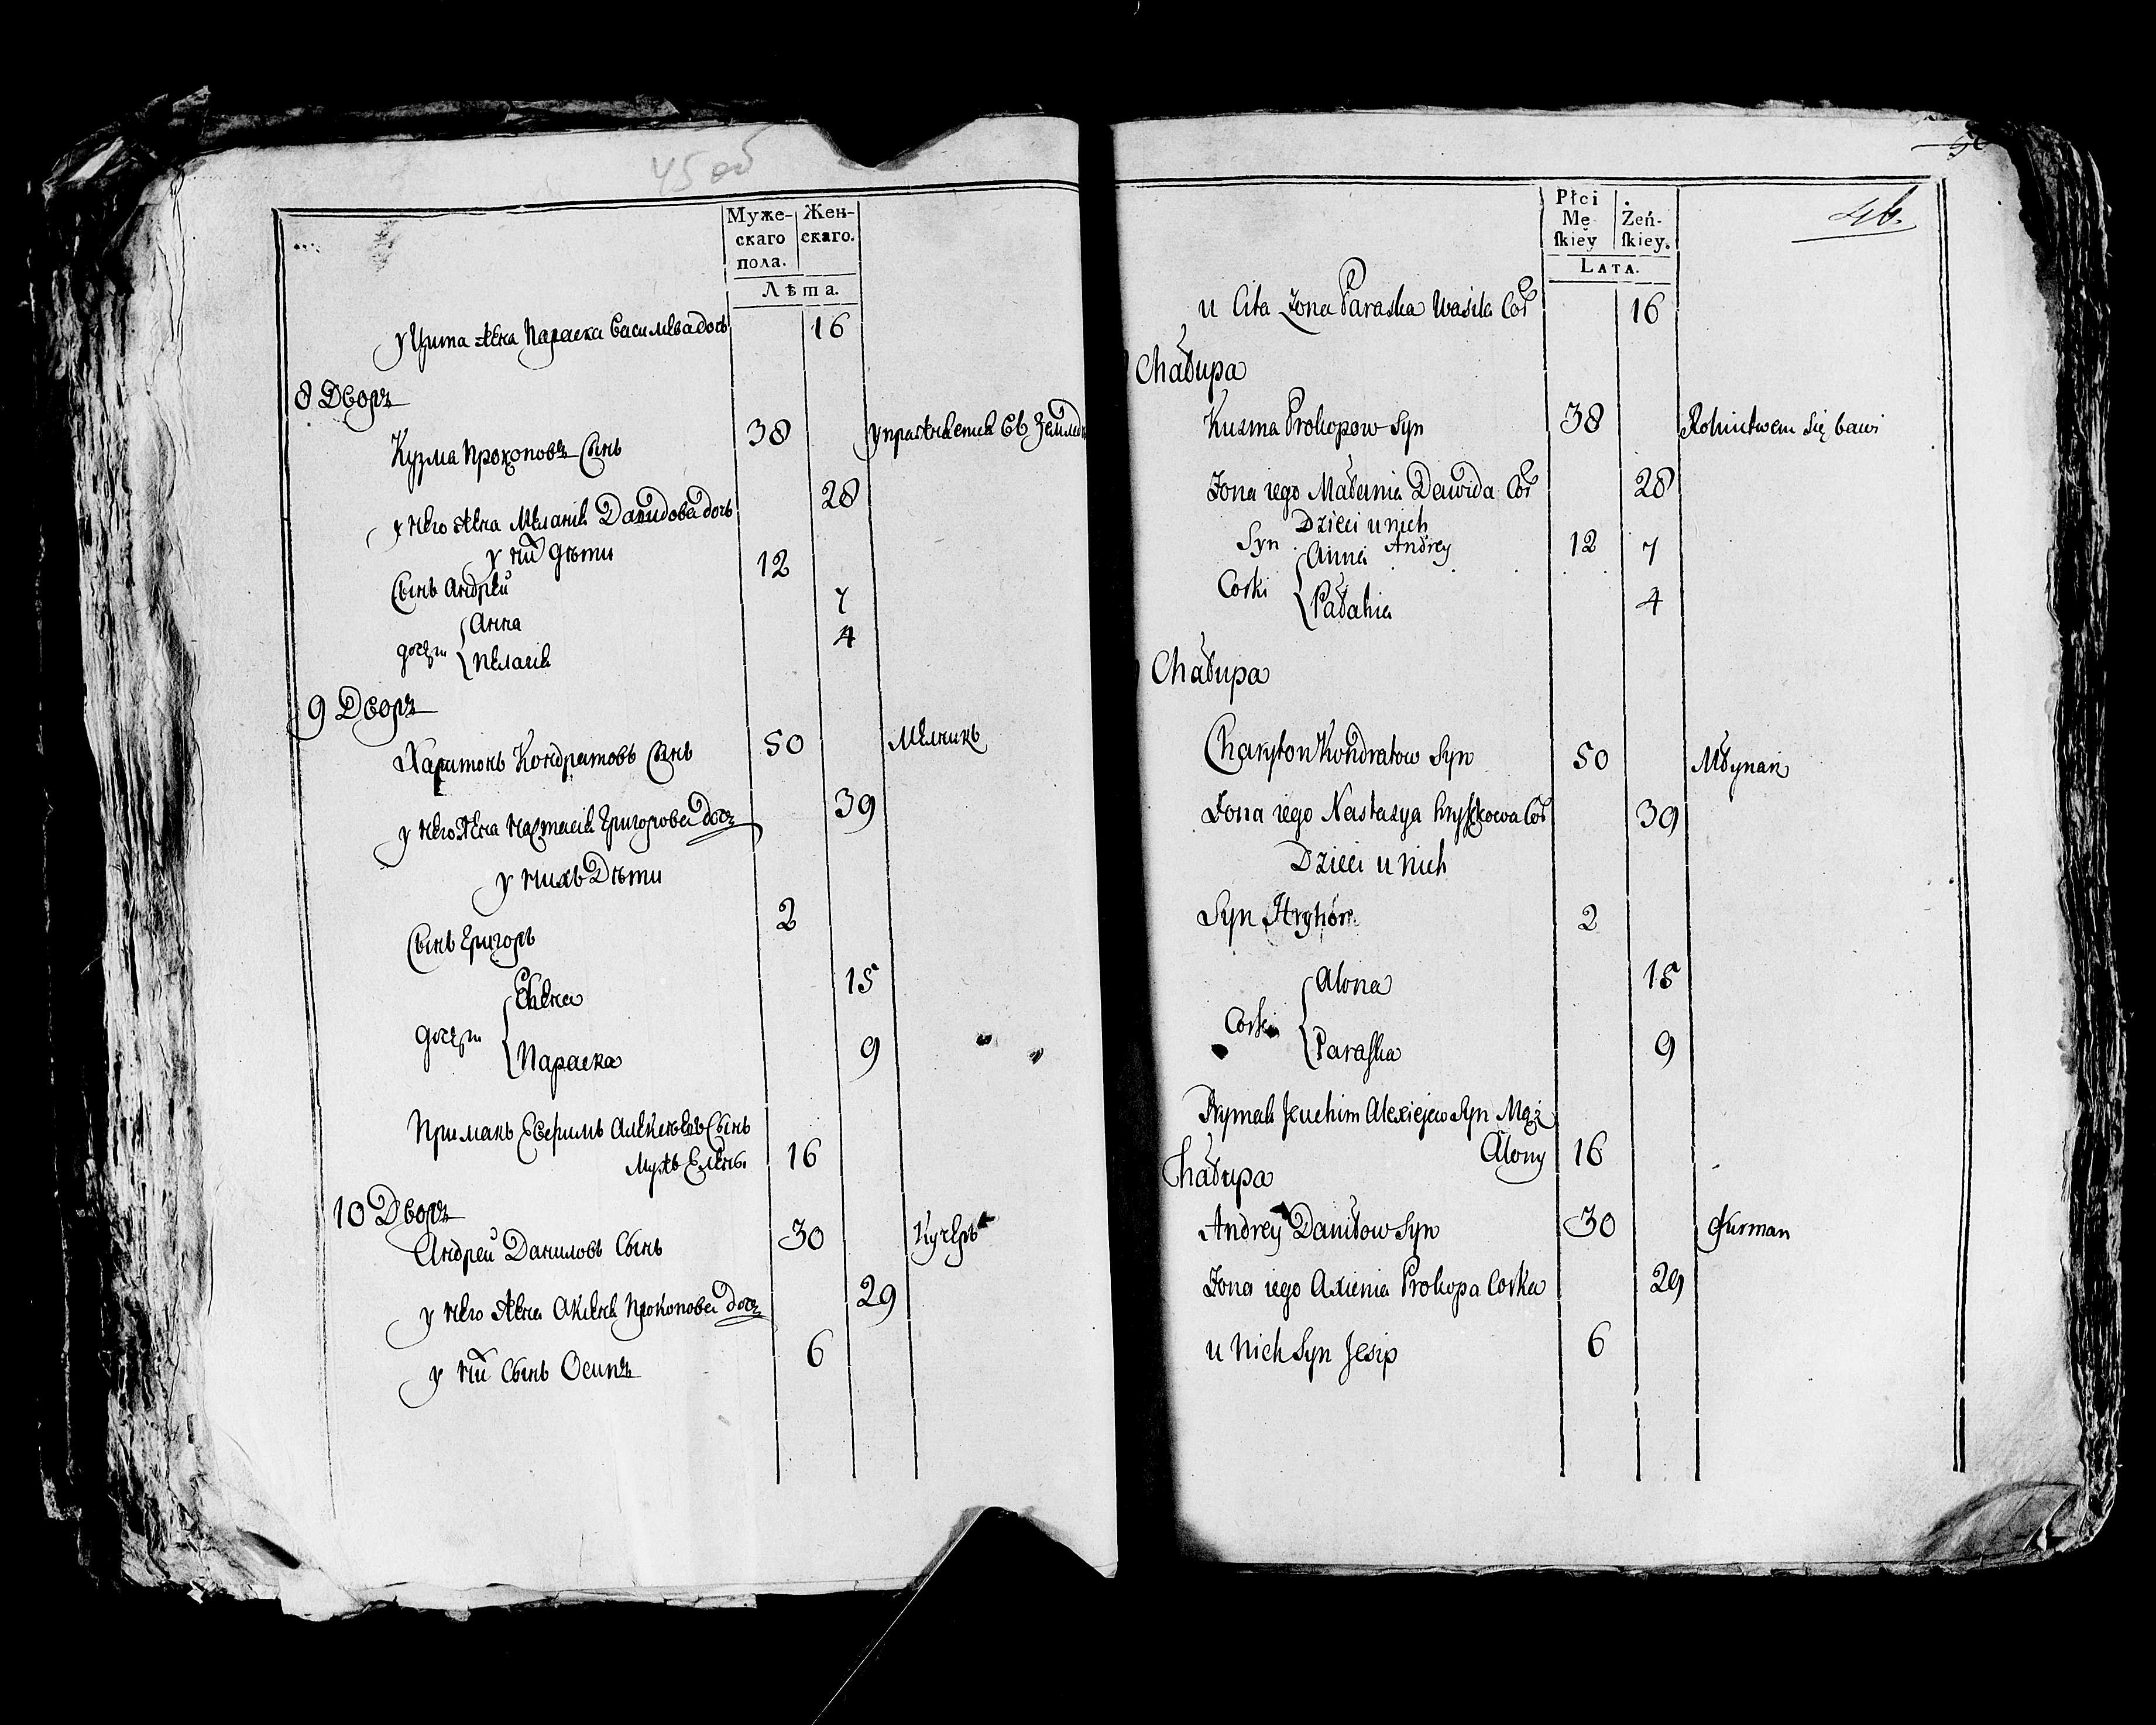 45 об
Муже-
скаго
пола.
Жен-
скаго.
Лѣта.
у Цита жена Параска Василева дочь 16
8 Дворъ
Кузма Прокоповъ Сынъ 38
у него жена Меланія Давидова дочь 28
у ни дѣти
Сынъ Андрей 12
Анна 7
Пелагія 4
9 Дворъ
Харитонъ Кондратовъ Сынъ 50 Мелникъ
у него жена Настасія Григорова доч 39
у нихъ Дѣти
Сынъ Григоръ 2
Елена 15
Параска 9
Примакъ Алексеевъ Сынъ
Мужъ Елены 16
10 Дворъ
Андрей Даниловъ Сынъ 30 Кучеръ
у него жена Прокопова доч 29
у ни Сынъ Осипъ 6
46
Płci
Mę-
ſkiey
Żeń-
ſkiey.
LATA.
u Cita Zona Paraska Wasila Cor 16
Chałupa
Kuzma Prokopow Syn 38 Rolnictwem się bawi
Zona iego Małania Dawida Cor 28
Dzieci u nich
Syn Andrey 12
Corki Anna 7
Pałahia 4
Chałupa
Charyton Kondratow Syn 50 Młynarz
Zona iego Nastazya Cor 39
Dzieci u Nich
Syn Hryhor 2
Alona 15
Corki
Paraſka 9
Prymak Jeuchim Alexiejew Syn Mąż
Alony 16
Chałupa
Andrey Daniłow Syn 30 Furman
Zona iego Axienia Prokopa Corka 29
u Nich Syn Jesip 6